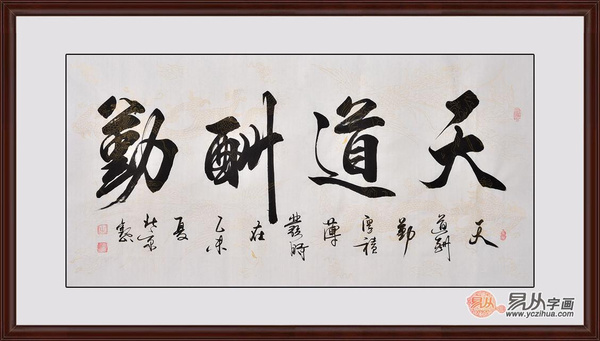 天道酬勤
天道酬勤厚積薄發時在乙未夏
易从
易从字画
www.yczihua.com